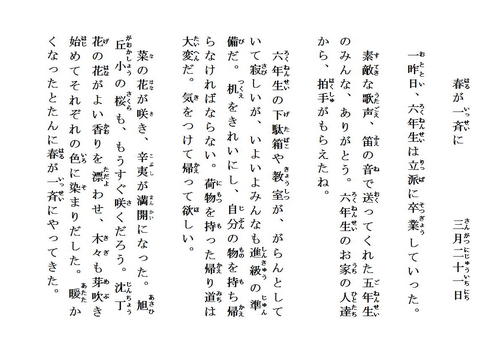 春が一斉に　三月二十一日
一昨日、六年生は立派に卒業していった。
素敵な歌声、笛の音で送ってくれた五年生
のみんな、ありがとう。六年生のお家の人達
から、拍手がもらえたね。
六年生の下駄箱や教室が、がらんとして
いて寂しいが、いよいよみんなも進級の準
備だ。机をきれいにし、自分の物を持ち帰
らなければならない。荷物を持った帰り道は
大変だ。気をつけて帰って欲しい。
菜の花が咲き、辛夷が満開になった。旭
丘小の桜も、もうすぐ咲くだろう。沈丁
花の花がよい香りを漂わせ、木々も芽吹き
始めてそれぞれの色に染まりだした。暖か
くなったとたんに春が一斉にやってきた。